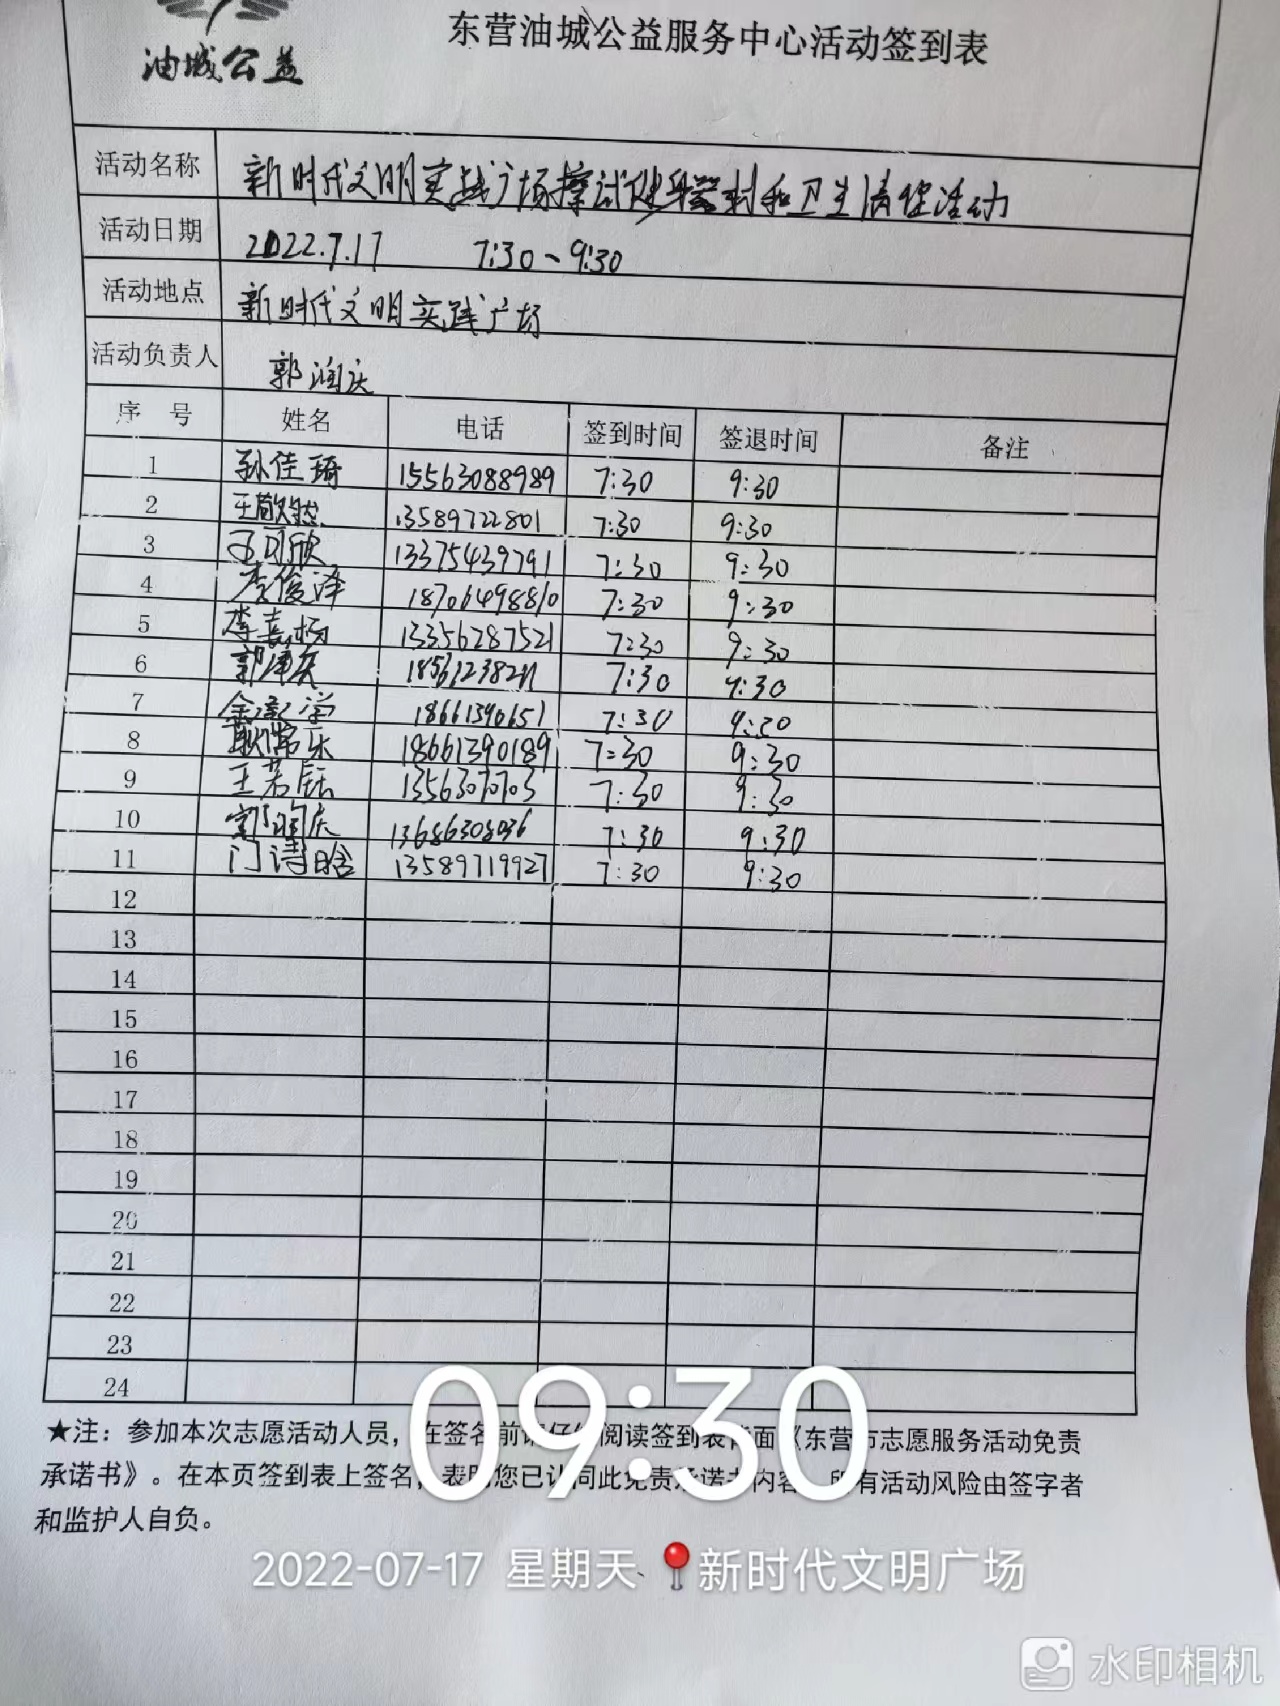 油城公益
东营油城公益服务中心活动签到表
活动名称 新时代文明实践广场擦试健身器材和卫生清洁活动
活动日期 2022.7.17 7:30~9:30
活动地点 新时代文明实践广场
活动负责人 郭润庆
序号 姓名 电话 签到时间 签退时间 备注
1 孙佳琦 15563088989 7:30 9:30
2 王歆然 13589722801 7:30 9:30
3 王可欣 13375439791 7:30 9:30
4 李俊泽 18706498810 7:30 9:30
5 李嘉杨 13356287521 7:30 9:30
6 7:30 9:30
7 18661390651 7:30 9:30
8 18661390189 7:30 9:30
9 王若钰 7:30 9:30
10 郭润庆 13686308036 7:30 9:30
11 门诗晗 13589719927 7:30 9:30
12
13
14
15
16
17
18
19
20
21
22
23
24
★注：参加本次志愿活动人员，在签名前请仔细阅读签到表背面《东营市志愿服务活动免责
承诺书》。在本页签到表上签名，表明您已认同此免责承诺书内容，所有活动风险由签字者
和监护人自负。
09:30
2022-07-17 星期天 新时代文明广场
水印相机